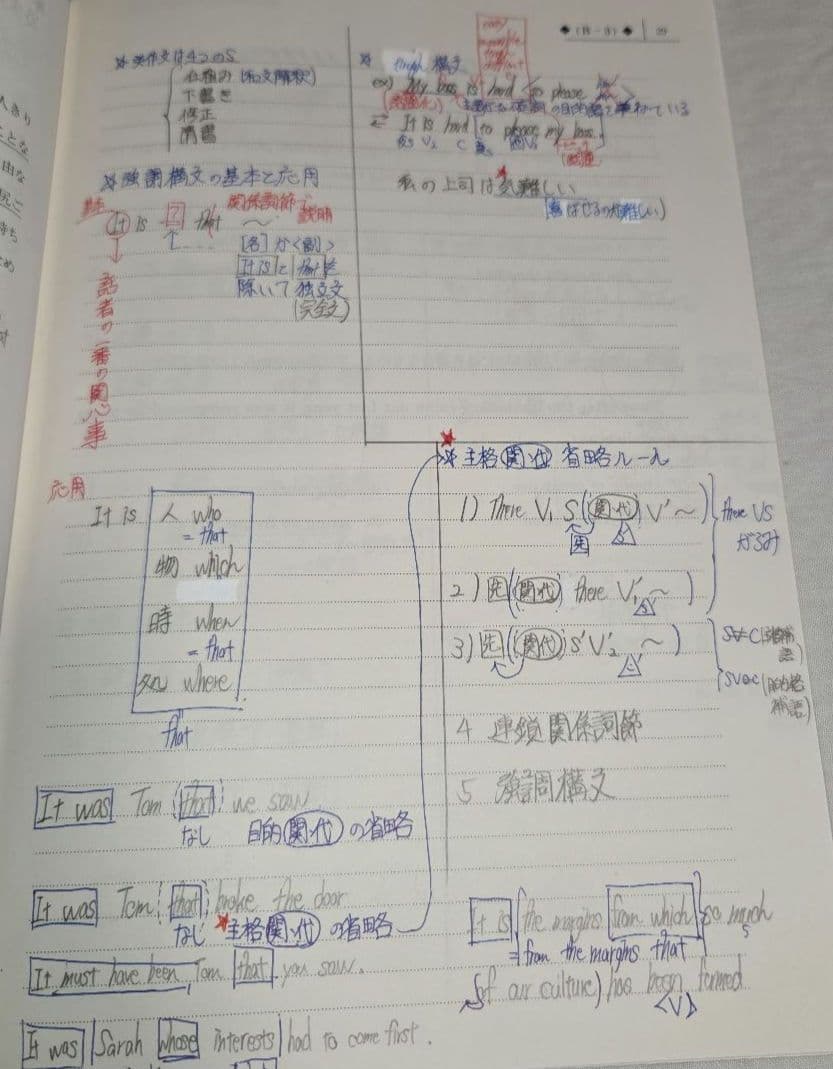 ◆ (世-3) ◆ 29
※英作文は4つのS
仕組み (和文解釈)
下書き
修正
清書
※強調構文の基本と応用
基本
It is [?] that ～
関係詞節で説明
[名] か <副>
It is と that を
除いて独立文
(完全文)
話者の一番の関心事
※ tough 構文
ex) My boss is hard to please
主語が不定詞の目的語を兼ねている
⇄ It is hard to please my boss.
仮S V₂ C 真S
私の上司は気難しい
(喜ばせるのが難しい)
応用
It is 人 who
= that
物 which
時 when
= that
処 where
that
It was Tom that we saw
なし 目的 関代 の省略
It was Tom that broke the door
なし ★主格 関代 の省略
It must have been Tom that you saw.
It was Sarah whose interests had to come first.
★
※主格 関代 省略ルール
1) There V₁ S (関代 V' ～)
there VS
がらみ
2) 先 (関代 there V'₁ ～)
3) 先 (関代 S'V'₂ ～)
4 連鎖関係詞節
5 強調構文
It is the margins from which so much
= from the margins that
of our culture) has been formed
<V>